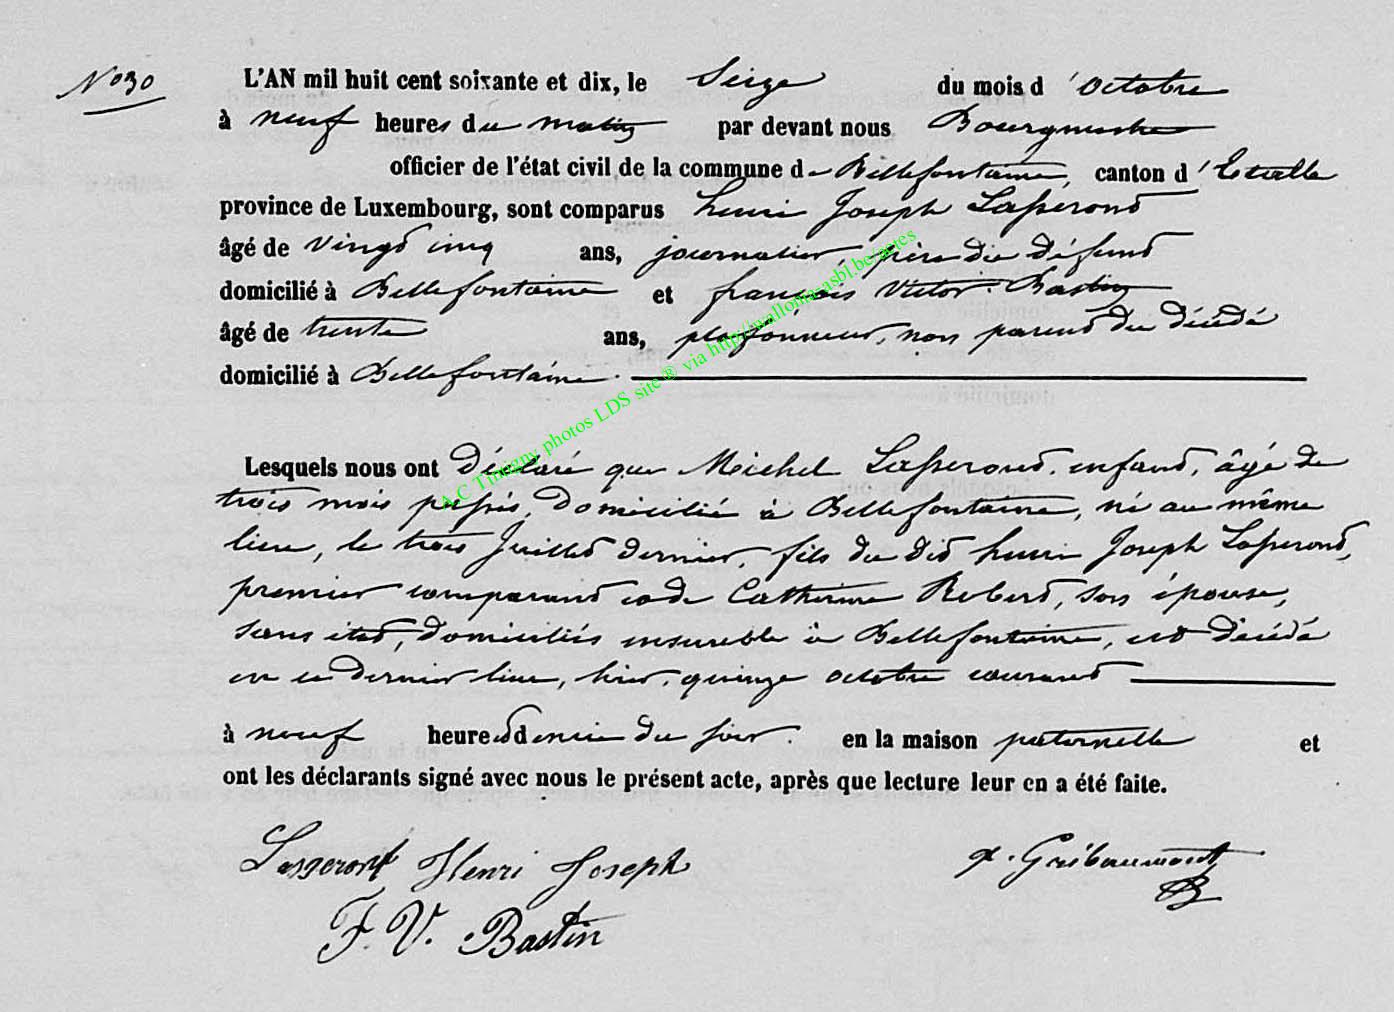 N° 30
L'AN mil huit cent soixante et dix, le Seize du mois d'octobre
à neuf heures du matin par devant nous Bourgmestre
officier de l'état civil de la commune de Bellefontaine, canton d'Etalle
province de Luxembourg, sont comparus henri Joseph Lasseront
âgé de vingt cinq ans, journalier, père du défunt
domicilié à Bellefontaine et françois Victor Bastin
âgé de trente ans, plafonneur, non parent du décédé
domicilié à Bellefontaine.
Lesquels nous ont déclaré que Michel Lasseront, enfant, âgé de
trois mois passés, domicilié à Bellefontaine, né au même
lieu, le trois Juillet dernier, fils du dit henri Joseph Lasseront,
premier comparant et de Catherine Robert, son épouse,
sans état, domiciliés ensemble à Bellefontaine, est décédé
en ce dernier lieu, hier, quinze octobre courant
à neuf heures et demie du soir. en la maison paternelle et
ont les déclarants signé avec nous le présent acte, après que lecture leur en a été faite.
Lasseront Henri Joseph
F. V. Bastin
A C Tintigny photos LDS site ® via http://wallonia-asbl.be/actes